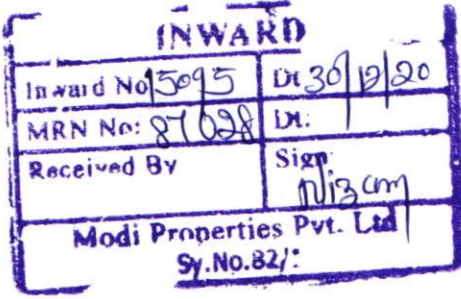 INWARD
Inward No 15095 Dt 30/12/20
MRN No: 87028 Dt:
Received By Sign
Nizam
Modi Properties Pvt. Ltd
Sy.No.82/: